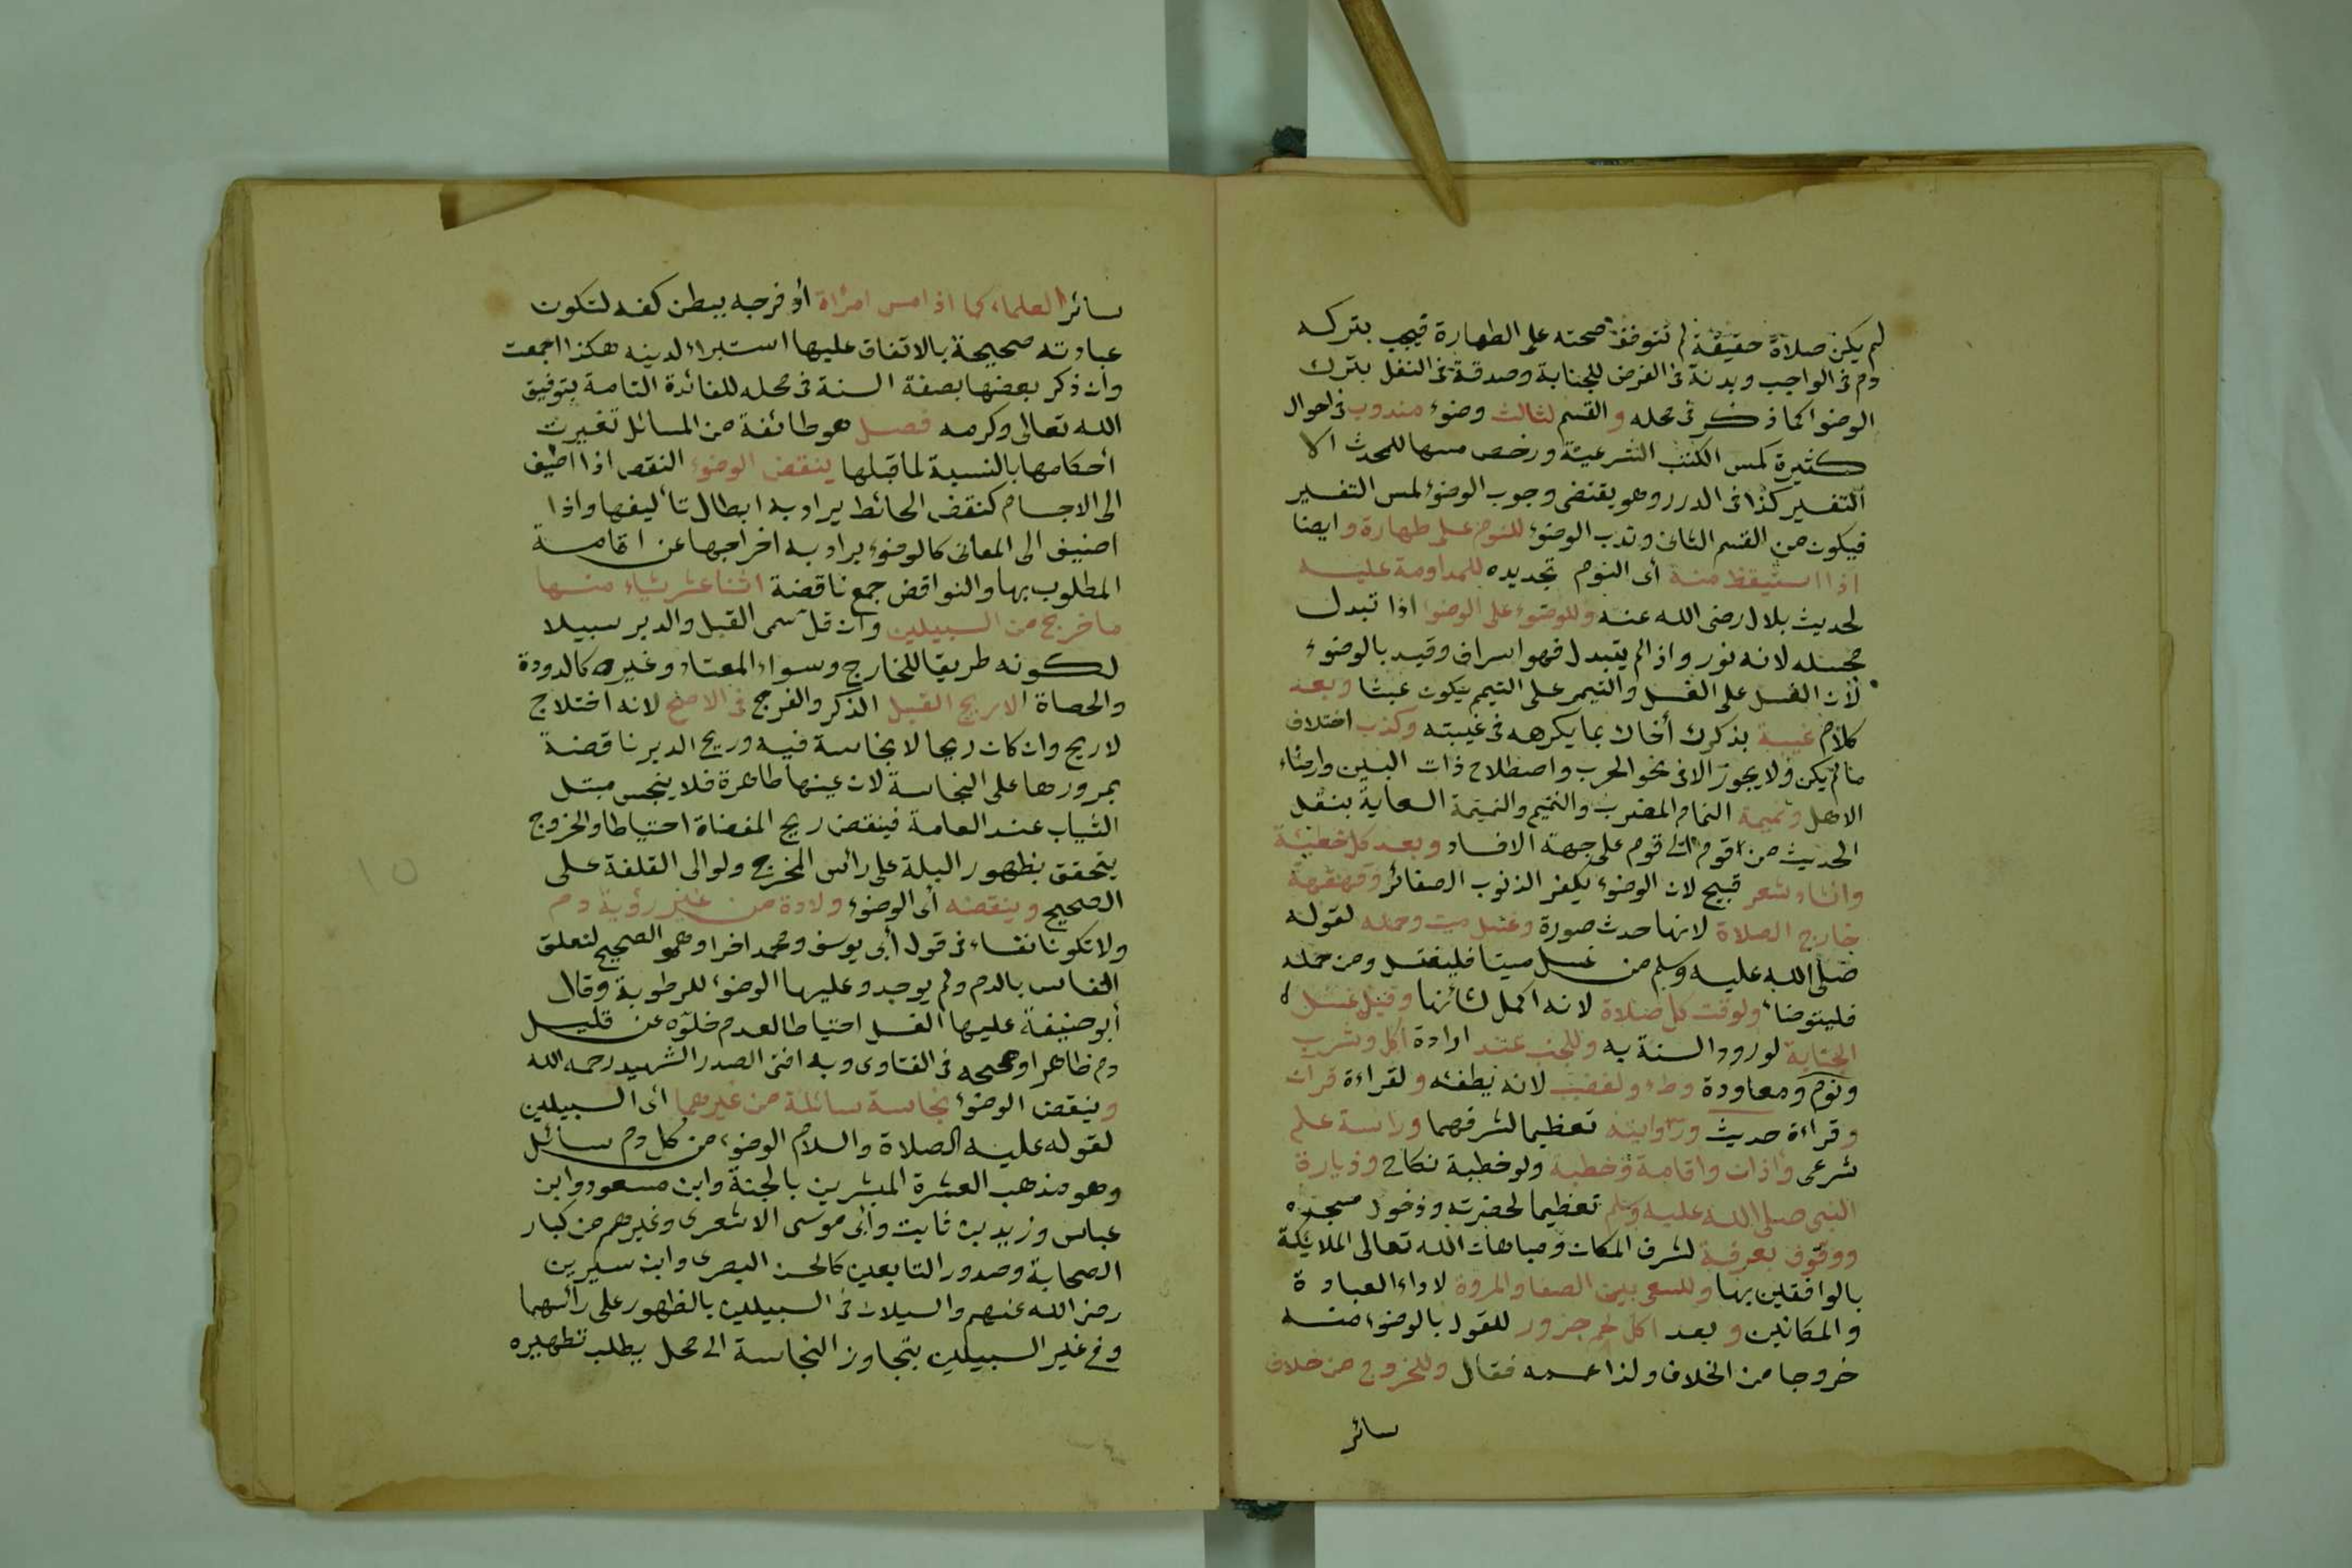 لم يكن صلاة حقيقة لم تتوقف صحته على الطهارة فيجب بتركه
دم فى الواجب وبدنة فى الفرض للجنابة وصدقة فى النفل بترك
الوضوا كما ذكر فى محله والقسم لثالث وضوء مندوب فى احوال
كثيرة كمس الكتب الشرعية ورخص مسها للمحدث الا
التفسير كذا فى الدرر وهو يقتضى وجوب الوضوء لمس التفسير
فيكون من القسم الثانى وندب الوضوء للنوم على طهارة وايضا
اذا استيقظ منه أى النوم تجديده للمداومة عليه
لحديث بلال رضى الله عنه وللوضوء على الوضوا اذا تبدل
مجلسه لانه نور واذا لم يتبدل فهو اسراف وقيد بالوضوء
لأن الغسل على الغسل والتيمم على التيمم يكون عبثا وبعد
كلام غيبة بذكرك أخاك بما يكرهه فى غيبته وكذب اختلاق
ما لم يكن ولا يجوز الا فى نحو الحرب واصطلاح ذات البين وارضاء
الاهل ونميمة النمام المضرب والنميم والنميمة السعاية بنقل
الحديث من قوم الى قوم على جهة الافساد وبعد كل خطيئة
وانشاد شعر قبيح لان الوضوء يكفر الذنوب الصغائر وقهقهة
خارج الصلاة لانها حدث صورة وغسل ميت وحمله لقوله
صلى الله عليه وسلم من غسل ميتا فليغتسل ومن حمله
فليتوضأ ولوقت كل صلاة لانه اكمل لشانها وقبل غسل
الجنابة لورود السنة به وللجنب عند ارادة اكل وشرب
ونوم ومعاودة وطء ولغضب لانه يطفئه ولقراءة قران
وقراءة حديث وروايته تعظيما لشرفهما ودراسة علم
شرعى وأذان واقامة وخطبة ولو خطبة نكاح وزيارة
النبى صلى الله عليه وسلم تعظيما لحضرته ودخول مسجده
ووقوف بعرفة لشرف المكان ومباهات الله تعالى الملائكة
بالواقفين بها وللسعى بين الصفا والمروة لاداء العبادة
والمكانين وبعد اكل لحم جزور للقول بالوضوء منه
خروجا من الخلاف ولذا عممه فقال وللخروج من خلاف
سائر
سائر العلماء كما اذا مس امرأة أو فرجه ببطن كفه لتكون
عبادته صحيحة بالاتفاق عليها استبراء لدينه هكذا اجمعت
وان ذكر بعضها بصفة السنة فى محله للفائدة التامة بتوفيق
الله تعالى وكرمه فصل هو طائفة من المسائل تغيرت
أحكامها بالنسبة لما قبلها ينقض الوضوء النقض اذا اضيف
الى الاجسام كنقض الحائط يراد به ابطال تأليفها واذا
اضيف الى المعانى كالوضوء يراد به اخراجها عن اقامة
المطلوب بها والنواقض جمع ناقضة اثنا عشر شياء منها
ما خرج من السبيلين وان قل سمى القبل والدبر سبيلا
لكونه طريقا للخارج وسواء المعتاد وغيره كالدودة
والحصاة الا ريح القبل الذكر والفرج فى الاصح لانه اختلاج
لا ريح وان كان ريحا لا نجاسة فيه وريح الدبر ناقضة
بمرورها على النجاسة لان عينها طاهرة فلا ينجس مبتل
الثياب عند العامة فينقض ريح المفضاة احتياطا والخروج
يتحقق بظهور البلة على رأس المخرج ولو الى القلفة على
الصحيح وينقضه أى الوضوء ولادة من غير رؤية دم
ولا تكون نفساء فى قول أبى يوسف ومحمد اخرا وهو الصحيح لتعلق
النفاس بالدم ولم يوجد وعليها الوضوء للرطوبة وقال
أبو حنيفة عليها الغسل احتياطا لعدم خلوه عن قليل
دم ظاهرا وصححه فى الفتاوى وبه افتى الصدر الشهيد رحمه الله
وينقض الوضوء نجاسة سائلة من غيرهما أى السبيلين
لقوله عليه الصلاة والسلام الوضوء من كل دم سائل
وهو مذهب العشرة المبشرين بالجنة وابن مسعود وابن
عباس وزيد بن ثابت وابى موسى الاشعرى وغيرهم من كبار
الصحابة وصدور التابعين كالحسن البصرى وابن سيرين
رضى الله عنهم والسيلان فى السبيلين بالظهور على رأسهما
وفى غير السبيلين بتجاوز النجاسة الى محل يطلب تطهيره
١٥